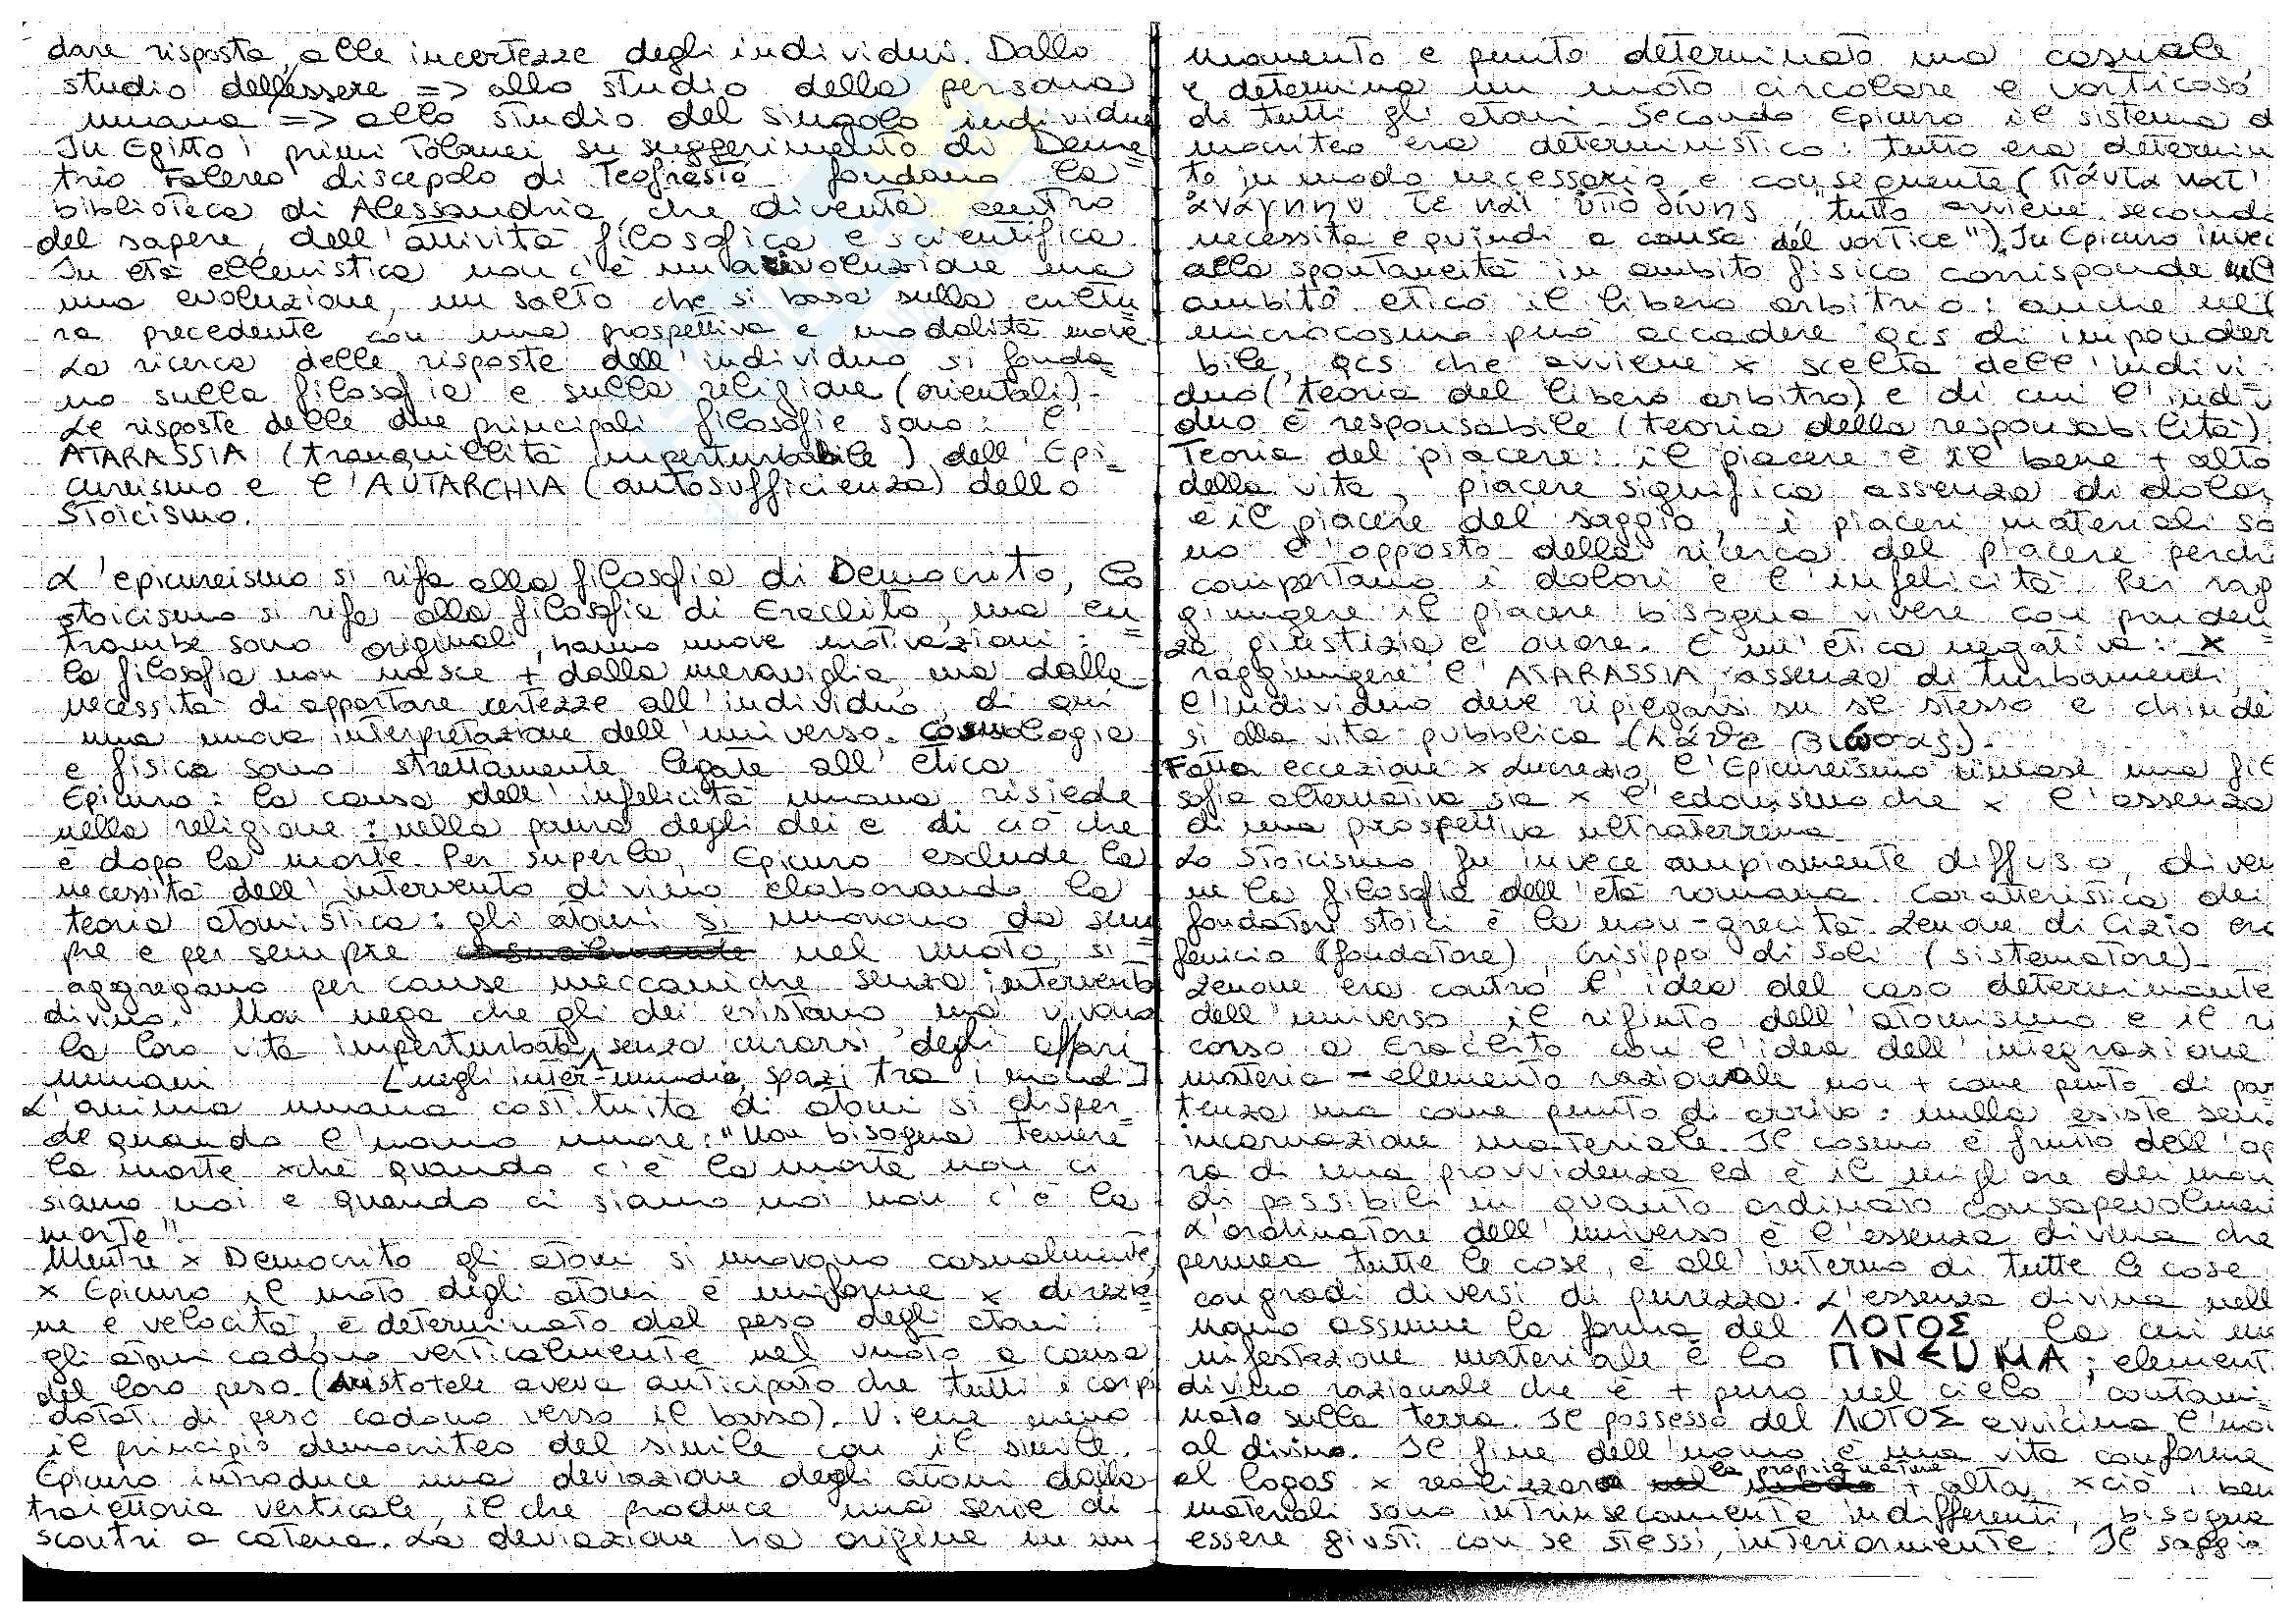 dare risposta alle incertezze degli individui. Dallo
studio dell'essere => allo studio della persona
umana => allo studio del singolo individuo
In Egitto i primi Tolomei su suggerimento di Deme=
trio Falereo discepolo di Teofrasto fondano la
biblioteca di Alessandria, che diventa centro
del sapere, dell'attività filosofica e scientifica.
In età ellenistica non c'è una rivoluzione ma
una evoluzione, un salto che si basa sulla cultu
ra precedente con una prospettiva e modalità nuove
La ricerca delle risposte dell'individuo si fonda=
no sulla filosofia e sulla religione (orientali).
Le risposte delle due principali filosofie sono: l'
ATARASSIA (tranquillità imperturbabile) dell'Epi=
cureismo e l'AUTARCHIA (autosufficienza) dello
Stoicismo.
L'epicureismo si rifà alla filosofia di Democrito, lo
stoicismo si rifà alla filosofia di Eraclito, ma en=
trambe sono originali, hanno nuove motivazioni:
la filosofia non nasce + dalla meraviglia, ma dalla
necessità di apportare certezze all'individuo, di qui
una nuova interpretazione dell'universo. Cosmologia
e fisica sono strettamente legate all'etica
Epicuro: la causa dell'infelicità umana risiede
nella religione: nella paura degli dei e di ciò che
è dopo la morte. Per superla, Epicuro esclude la
necessità dell'intervento divino elaborando la
teoria atomistica: gli atomi si muovono da sem=
pre e per sempre nel vuoto, si
aggregano per cause meccaniche senza intervento
divino. Non nega che gli dei esistano, ma vivono
la loro vita imperturbata, senza curarsi degli affari
umani [negli inter-mundia, spazi tra i mondi]
L'anima umana costituita di atomi si disper=
de quando l'uomo muore: "Non bisogna temere
la morte xchè quando c'è la morte non ci
siamo noi e quando ci siamo noi non c'è la
morte".
Mentre x Democrito gli atomi si muovono casualmente,
x Epicuro il moto degli atomi è uniforme x direzio=
ne e velocità, è determinato dal peso degli atomi:
gli atomi cadono verticalmente nel vuoto a causa
del loro peso. (Aristotele aveva anticipato che tutti i corpi
dotati di peso cadono verso il basso). Viene meno
il principio democriteo del simile con il simile.
Epicuro introduce una deviazione degli atomi dalla
traiettoria verticale, il che produce una serie di
scontri a catena. La deviazione ha origine in un
momento e punto determinato ma casuale,
e determina un moto circolare e vorticoso
di tutti gli atomi. Secondo Epicuro il sistema d
mocriteo era deterministico: tutto era determin
to in modo necessario e conseguente (πάντα κατ'
ἀνάγκην τε καὶ ὑπὸ δίνης, "tutto avviene second
necessità e quindi a causa del vortice"). In Epicuro invec
alla spontaneità in ambito fisico corrisponde nell
ambito etico il libero arbitrio: anche nel
microcosmo può accadere qcs di imponder
bile, qcs che avviene x scelta dell'indivi=
duo (teoria del libero arbitro) e di cui l'indivi
duo è responsabile (teoria della responsabilità)
Teoria del piacere: il piacere è il bene + alto
della vita, piacere significa assenza di dolor
è il piacere del saggio, i piaceri materiali so
no l'opposto della ricerca del piacere perchè
comportano i dolori e l'infelicità. Per rag
giungere il piacere bisogna vivere con pruden=
za, giustizia e onore. È un'etica negativa: x
raggiungere l'ATARASSIA, assenza di turbamenti,
l'individuo deve ripiegarsi su se stesso e chiude
si alla vita pubblica (λάθε βιώσας).
Fatta eccezione x Lucrezio, l'Epicureismo rimase una fil
sofia alternativa sia x l'edonismo che x l'assenza
di una prospettiva ultraterrena
Lo Stoicismo fu invece ampiamente diffuso, diven
ne la filosofia dell'età romana. Caratteristica dei
fondatori stoici è la non-grecità. Zenone di Cizio era
fenicio (fondatore), Crisippo di Soli (sistematore).
Zenone era contro l'idea del caso determinante
dell'universo, il rifiuto dell'atomismo e il ri
corso a Eraclito con l'idea dell'integrazione
materia - elemento razionale non + come punto di par
tenza ma come punto di arrivo: nulla esiste sen
incarnazione materiale. Il cosmo è frutto dell'op
ra di una provvidenza ed è il migliore dei mon
di possibili in quanto ordinato consapevolmen
L'ordinatore dell'universo è l'essenza divina che
permea tutte le cose, è all'interno di tutte le cose
con gradi diversi di purezza. L'essenza divina nell
uomo assume la forma del ΛΟΓΟΣ, la cui ma
nifestazione materiale è lo ΠΝΕUΜΑ; element
divino razionale che è + puro nel cielo, contami=
nato sulla terra. Il possesso del ΛΟΓΟΣ avvicina l'uo
al divino. Il fine dell'uomo è una vita conforme
al logos x realizzare la propria natura + alta, xciò i ben
materiali sono intrinsecamente indifferenti, bisogna
essere giusti con se stessi, interiormente. Il saggio